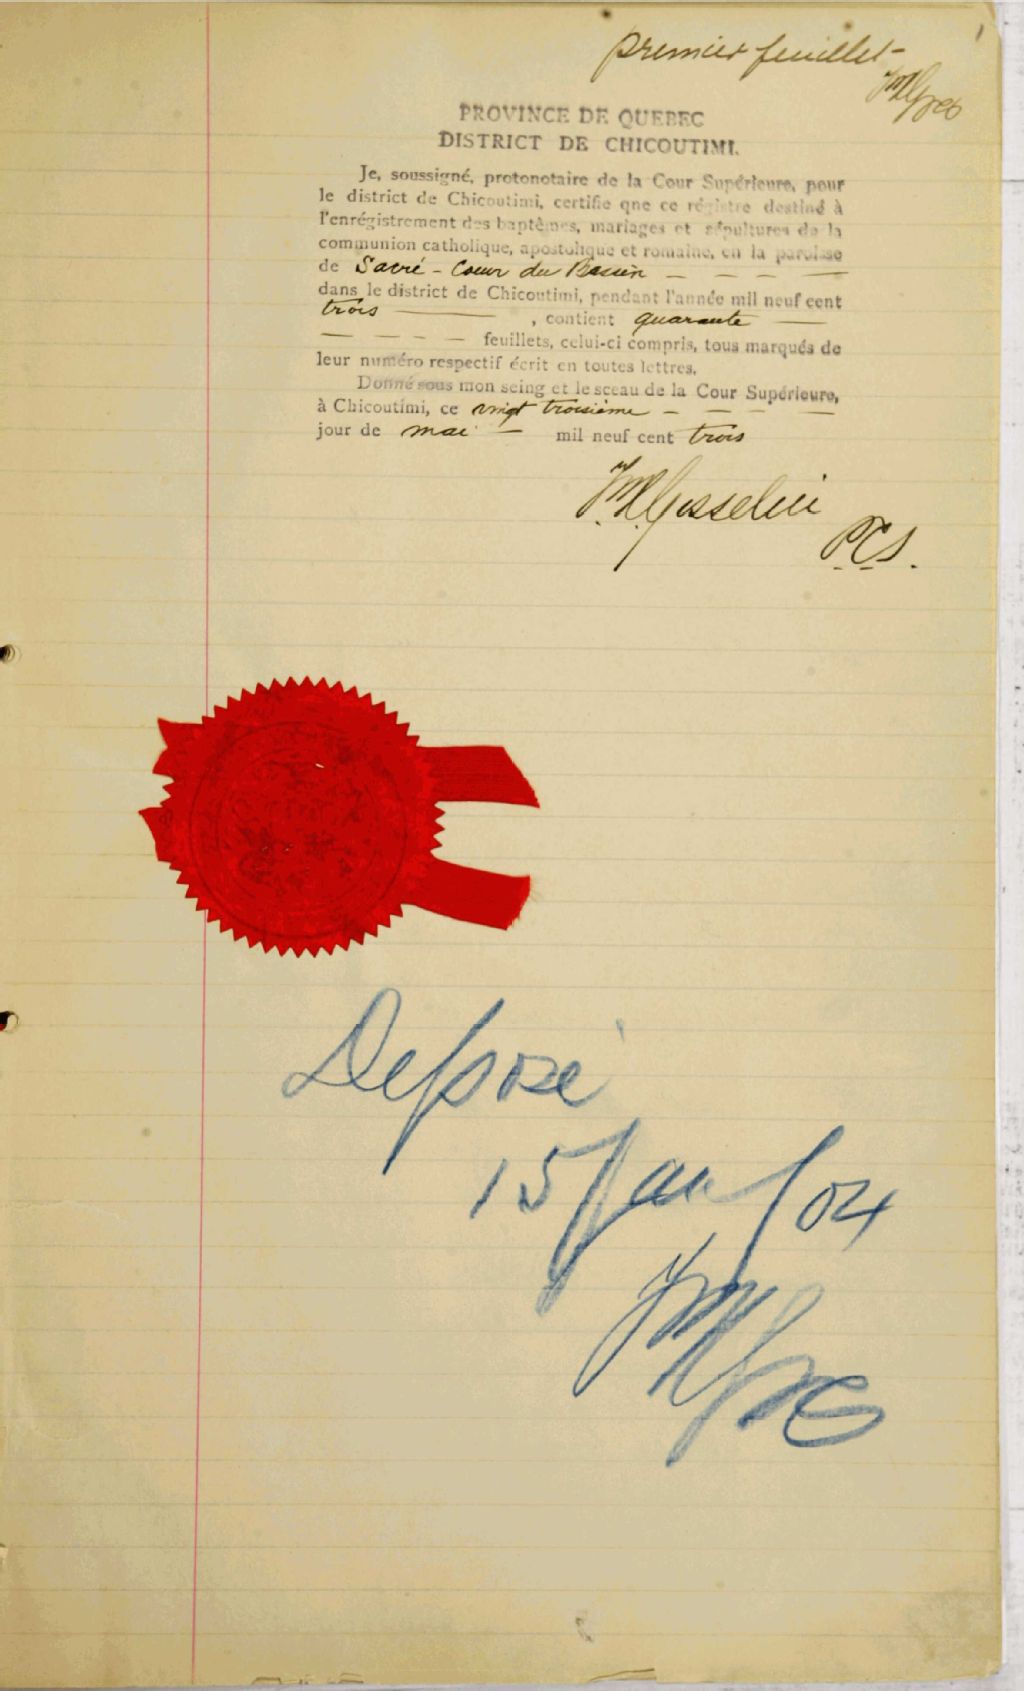 premier feuillet
PROVINCE DE QUEBEC
DISTRICT DE CHICOUTIMI.
Je, soussigné, protonotaire de la Cour Supérieure, pour
le district de Chicoutimi, certifie que ce régistre destiné à
l'enrégistrement des baptêmes, mariages et sépultures de la
communion catholique, apostolique et romaine, en la paroisse
de Sacré-Cœur du Bassin
dans le district de Chicoutimi, pendant l'année mil neuf cent
trois , contient quarante
feuillets, celui-ci compris, tous marqués de
leur numéro respectif écrit en toutes lettres.
Donné sous mon seing et le sceau de la Cour Supérieure,
à Chicoutimi, ce vingt troisième
jour de mai mil neuf cent trois
Gosselin
P.C.S.
Déposé
15 Jan/04